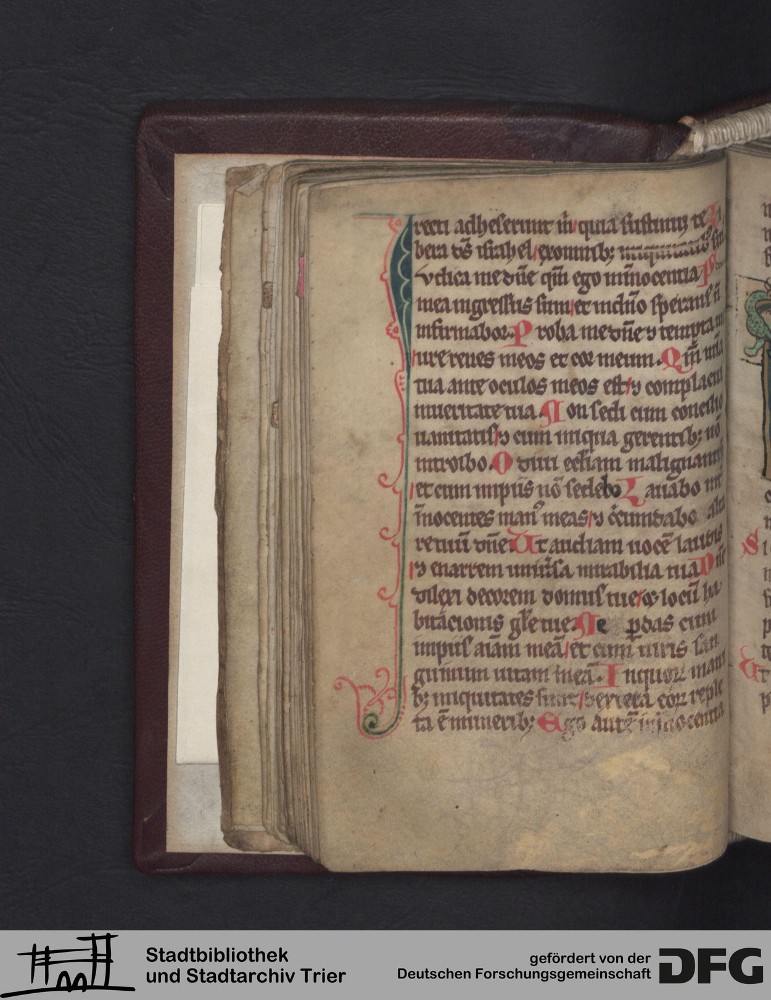 recti adheserunt m̄ quia sustinui te Li
bera ds̄ israhel exomnib; iniquitatib; suis
Vdica me dn̄e qm̄ ego in īnocentia
mea ingressus sum et in dn̄o sperans n̄
infirmabor. Proba me dn̄e ⁊ tempta m
ure renes meos et cor meum. Qm̄ mīa
tua ante oculos meos est ⁊ complacui
in ueritate tua. Non sedi cum concilio
uanitatis ⁊ cum iniqua gerentib; nō
introibo. Odiui eccl̄iam malignantiū
et cum impiis nō sedebo Lauabo int̄
īnocentes man⁹ meas ⁊ c̄cumdabo alta
re tuū dn̄e Ut audiam uocē laudis
⁊ enarrem uniūsa mirabilia tua Dn̄e
dilexi decorem domus tue ⁊ locū ha
bitacionis gl̄e tue Ne ꝑdas cum
impiis aīam meā et cum uiris san
guinum uitam meā. In quor̄ mani
b; iniquitates sunt dextera eor̄ reple
ta ē munerib; Ego autē in īnocentia
Stadtbibliothek
und Stadtarchiv Trier
gefördert von der
Deutschen Forschungsgemeinschaft
DFG